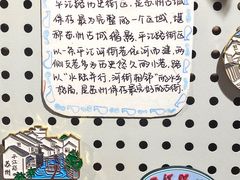 平江路历史街区,是苏州古城
保存最为完整的一片区域,堪
那苏州古城缩影.平江路街区
以一条平江河巷化河而建,两
侧又有多为历史悠久的小巷,路
以"水陆并行,河街相邻"的水乡
格局,是苏州保存最完好的古街.
平江路
苏州